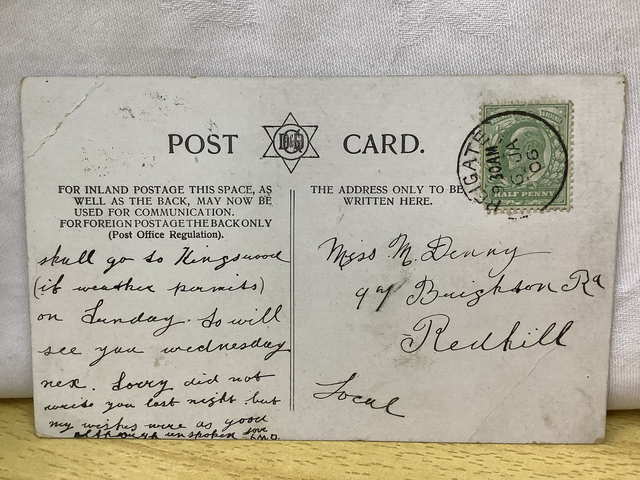 POST CARD.
FOR INLAND POSTAGE THIS SPACE, AS
WELL AS THE BACK, MAY NOW BE
USED FOR COMMUNICATION.
FOR FOREIGN POSTAGE THE BACK ONLY
(Post Office Regulation).
THE ADDRESS ONLY TO BE
WRITTEN HERE.
REIGATE
9.30AM
JA
06
HALF PENNY
shall go to Kingswood
(if weather permits)
on Sunday. So will
see you wednesday
nex. Sorry did not
write you last night but
my wishes were as good
although unspoken
love
Miss M. Denny
Brighton Rd
Redhill
Local